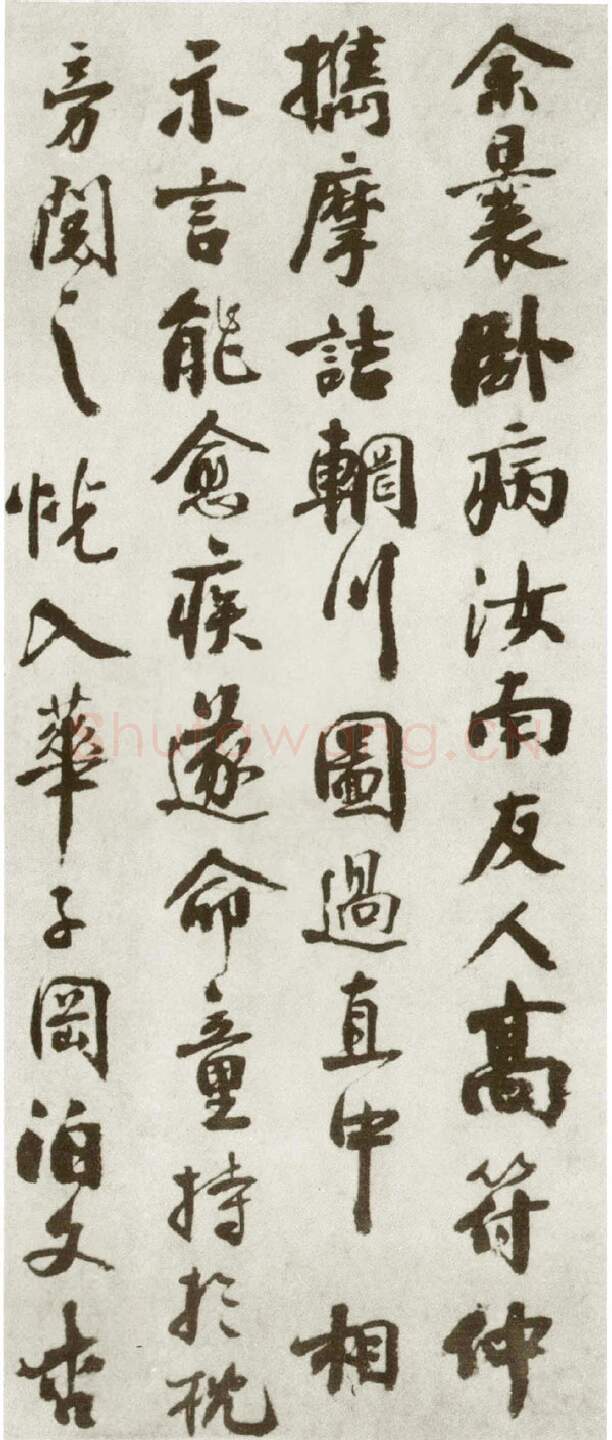 余曩卧病汝南友人高符仲
攜摩詰輞川圖過直中相
示言能愈疾遂命童持於枕
旁閱之恍入華子岡泊文杏
shufawang.CN